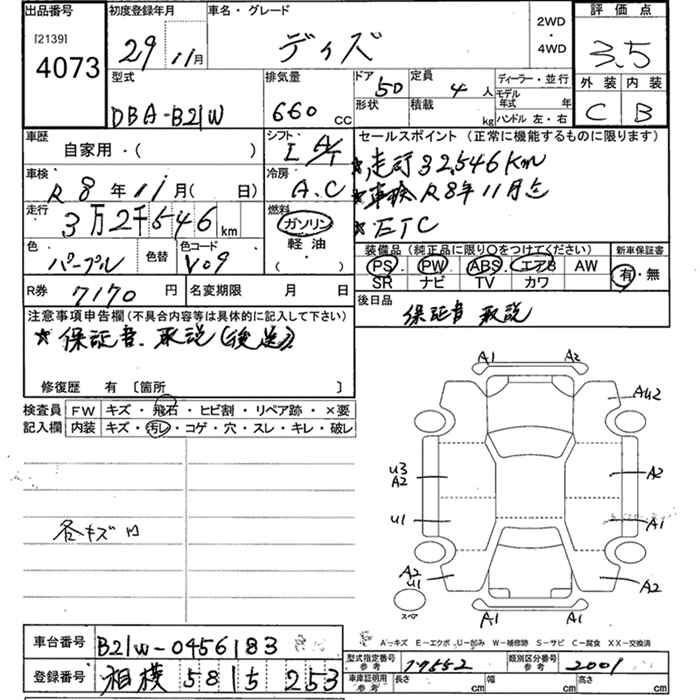 出品番号 初度登録年月 車名・グレード 2WD・4WD 評価点
[2139] 4073 29年11月 デイズ 3.5
型式 排気量 ドア 5D 定員 4人 ディーラー・並行 外装 内装
DBA-B21W 660cc 形状 積載 kg モデル年式 年 ハンドル 左・右 C B
車歴 シフト セールスポイント(正常に機能するものに限ります)
自家用・( ) I A/T ★走行32,546Km
車検 冷房 ★車検R8年11月迄
R8年11月( 日) A.C ★ETC
走行 燃料
3万2千546km ガソリン
色 色替 色コード 軽油
パープル V09 ( )
装備品(純正品に限り○をつけてください) 新車保証書
PS PW ABS エアB AW 有・無
SR ナビ TV カワ
R券 7170円 名変期限 月 日 後日品 保証書 取説
注意事項申告欄(不具合内容等は具体的に記入して下さい)
★保証書、取説(後送)
修復歴 有 〔箇所 〕
検査員 FW キズ・飛石・ヒビ割・リペア跡・×要
記入欄 内装 キズ・汚レ・コゲ・穴・スレ・キレ・破レ
各キズ凹
A1 A2
AU2
U3
A2 A2
U1 A1
A2
U1 A2
スペア A1 A1
A-キズ E-エクボ U-凹み W-補修跡 S-サビ C-腐食 XX-交換済
車台番号 B21W-0456183
登録番号 相模 581 5 253
型式指定番号 参考 17552 類別区分番号 参考 2001
車庫証明用 参考 長さ cm 幅 cm 高さ cm